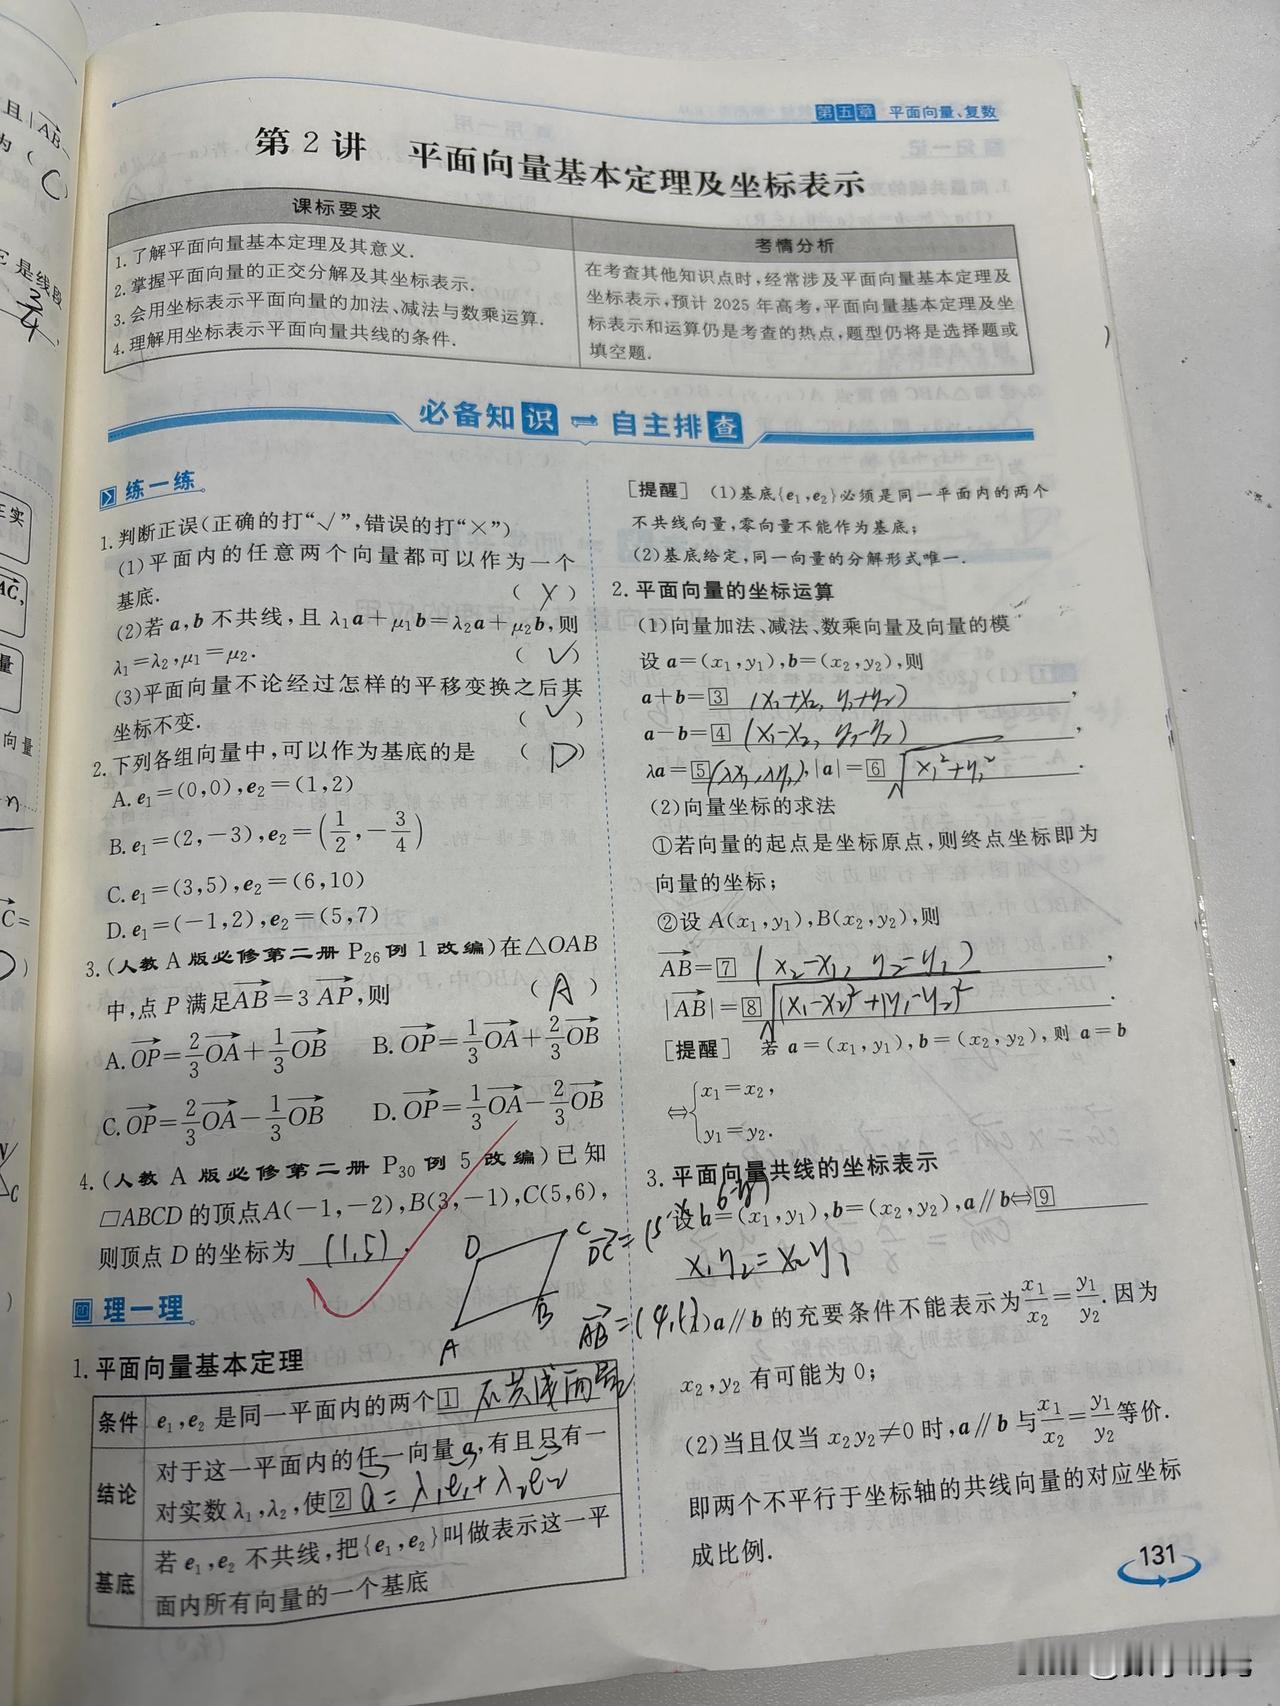 且|AB
为(
(C)
是线段
3/4
正实
AC,
量
向量
C=
第五章 平面向量、复数
第2讲 平面向量基本定理及坐标表示
课标要求
1.了解平面向量基本定理及其意义.
2.掌握平面向量的正交分解及其坐标表示.
3.会用坐标表示平面向量的加法、减法与数乘运算.
4.理解用坐标表示平面向量共线的条件.
考情分析
在考查其他知识点时,经常涉及平面向量基本定理及
坐标表示,预计2025年高考,平面向量基本定理及坐
标表示和运算仍是考查的热点,题型仍将是选择题或
填空题.
必备知识 自主排查
练一练
1.判断正误(正确的打“√”,错误的打“×”)
(1)平面内的任意两个向量都可以作为一个
基底. (×)
(2)若a,b不共线,且λ₁a+μ₁b=λ₂a+μ₂b,则
λ₁=λ₂,μ₁=μ₂. (√)
(3)平面向量不论经过怎样的平移变换之后其
坐标不变. (√)
2.下列各组向量中,可以作为基底的是 (D)
A.e₁=(0,0),e₂=(1,2)
B.e₁=(2,-3),e₂=(1/2,-3/4)
C.e₁=(3,5),e₂=(6,10)
D.e₁=(-1,2),e₂=(5,7)
3.(人教A版必修第二册P₂₆例1改编)在△OAB
中,点P满足AB=3AP,则 (A)
A.OP=2/3OA+1/3OB B.OP=1/3OA+2/3OB
C.OP=2/3OA-1/3OB D.OP=1/3OA-2/3OB
4.(人教A版必修第二册P₃₀例5改编)已知
□ABCD的顶点A(-1,-2),B(3,-1),C(5,6),
则顶点D的坐标为 (1,5).
D C
A B
理一理
1.平面向量基本定理
条件 e₁,e₂是同一平面内的两个① 不共线向量
结论 对于这一平面内的任一向量a,有且只有一
对实数λ₁,λ₂,使② a=λ₁e₁+λ₂e₂
基底 若e₁,e₂不共线,把{e₁,e₂}叫做表示这一平
面内所有向量的一个基底
[提醒] (1)基底{e₁,e₂}必须是同一平面内的两个
不共线向量,零向量不能作为基底;
(2)基底给定,同一向量的分解形式唯一.
2.平面向量的坐标运算
(1)向量加法、减法、数乘向量及向量的模
设a=(x₁,y₁),b=(x₂,y₂),则
a+b=③ (x₁+x₂, y₁+y₂),
a-b=④ (x₁-x₂, y₁-y₂),
λa=⑤(λx₁,λy₁),|a|=⑥ √x₁²+y₁².
(2)向量坐标的求法
①若向量的起点是坐标原点,则终点坐标即为
向量的坐标;
②设A(x₁,y₁),B(x₂,y₂),则
AB=⑦ (x₂-x₁, y₂-y₁),
|AB|=⑧√(x₁-x₂)²+(y₁-y₂)².
[提醒] 若a=(x₁,y₁),b=(x₂,y₂),则a=b
⇔{x₁=x₂,
y₁=y₂.
3.平面向量共线的坐标表示
设a=(x₁,y₁),b=(x₂,y₂),a∥b⇔⑨
DC=(5-x, 6-y)
x₁y₂=x₂y₁
AB=(4,1)
a∥b的充要条件不能表示为x₁/x₂=y₁/y₂.因为
x₂,y₂有可能为0;
(2)当且仅当x₂y₂≠0时,a∥b与x₁/x₂=y₁/y₂等价.
即两个不平行于坐标轴的共线向量的对应坐标
成比例.
131